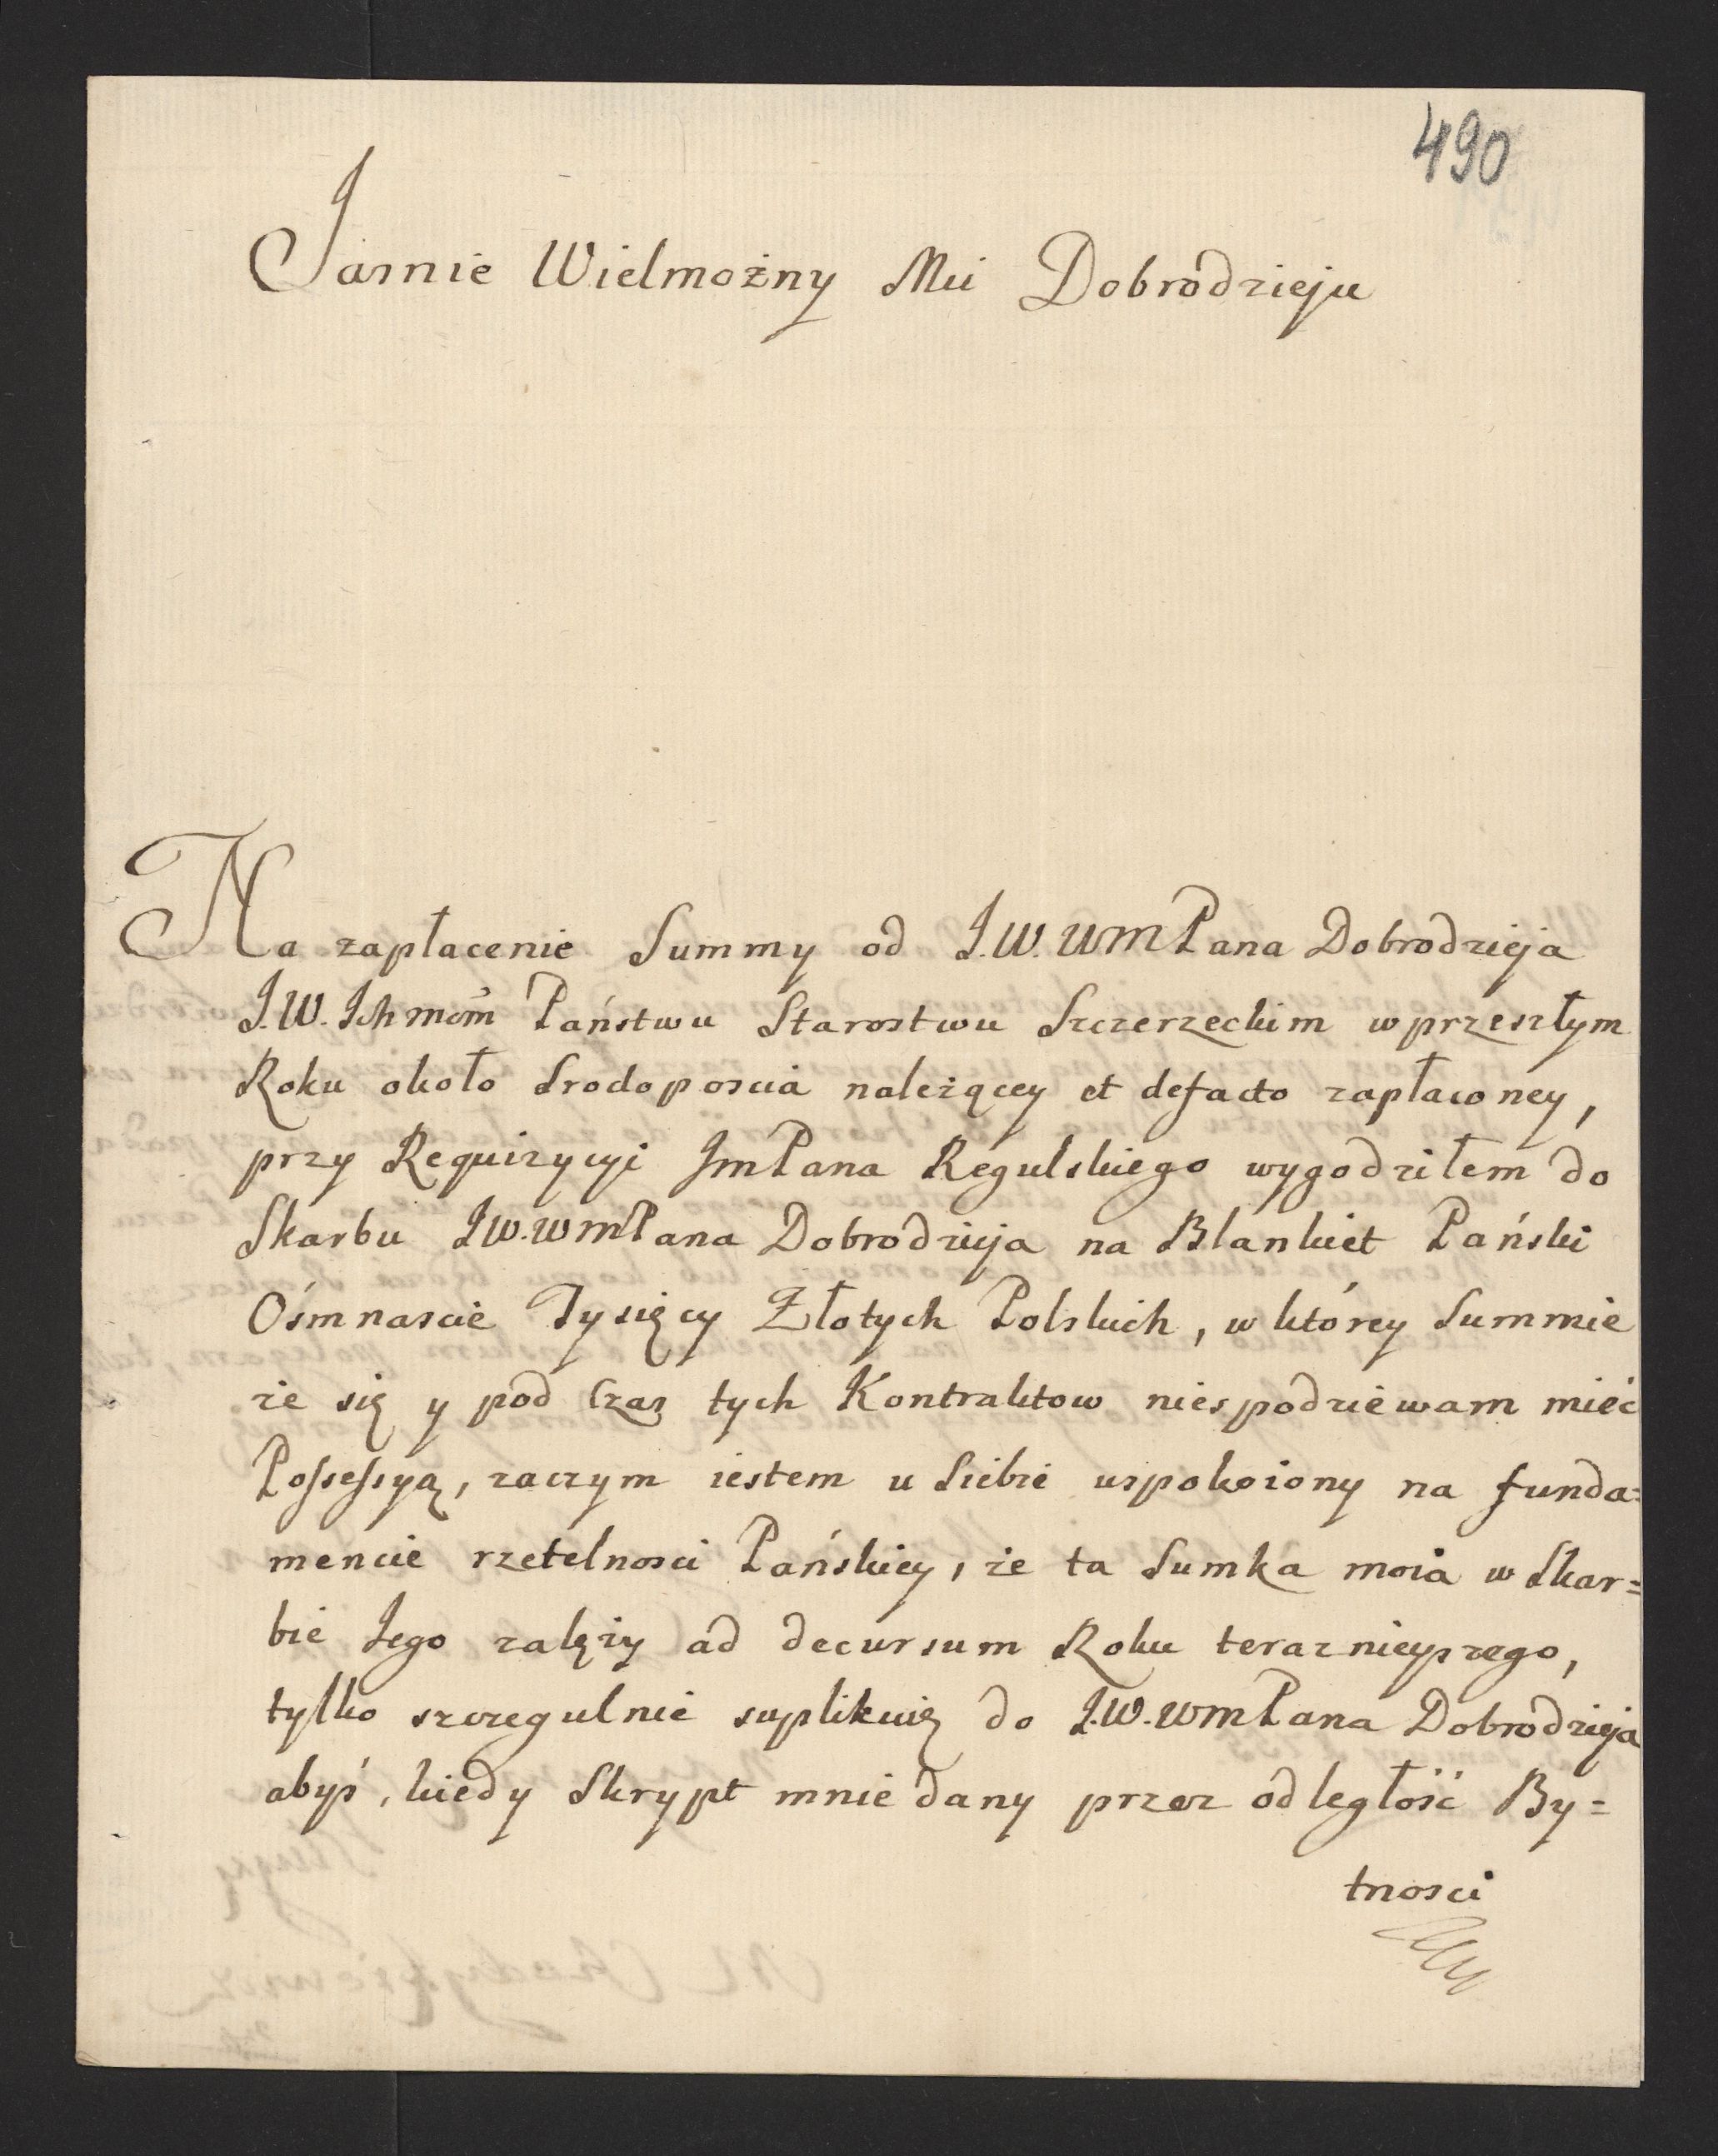 490
Jasnie Wielmożny Mci Dobrodzieju
Na zapłacenie Summy od J.W. WMPana Dobrodzieja
J.W. Ichmöm Państwu Starostwu Szczerzeckim w przeszłym
Roku około Srodoposcia należącey et defacto zapłaconey,
przy Requizycyi JmPana Regulskiego wygodziłem do
Skarbu J.W. WMPana Dobrodzieja na Blankiet Pański
Ośmnascie Tysięcy Złotych Polskich, w ktòrey Summie
że się y pod Czas tych Kontraktow niespodziewam mieć
Possessyą, zaczym iestem u Siebie uspokoiony na funda=
mencie rzetelnosci Pańskiey, że ta Sumka moia w Skar=
bie Jego zalęży ad decursum Roku teraznieyszego,
tylko szczegulnie suplikuię do J.W. WMPana Dobrodzieja
abyś, kiedy Skrypt mnie dany przez odległość By=
tnosci